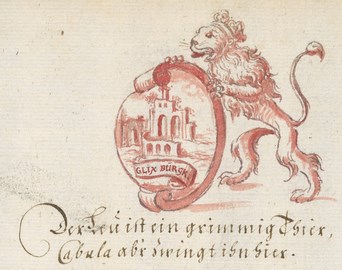 GLIX BÜRGK
Der Leü ist ein grimmig Thier,
Cabula abr zwingt ihn hier.